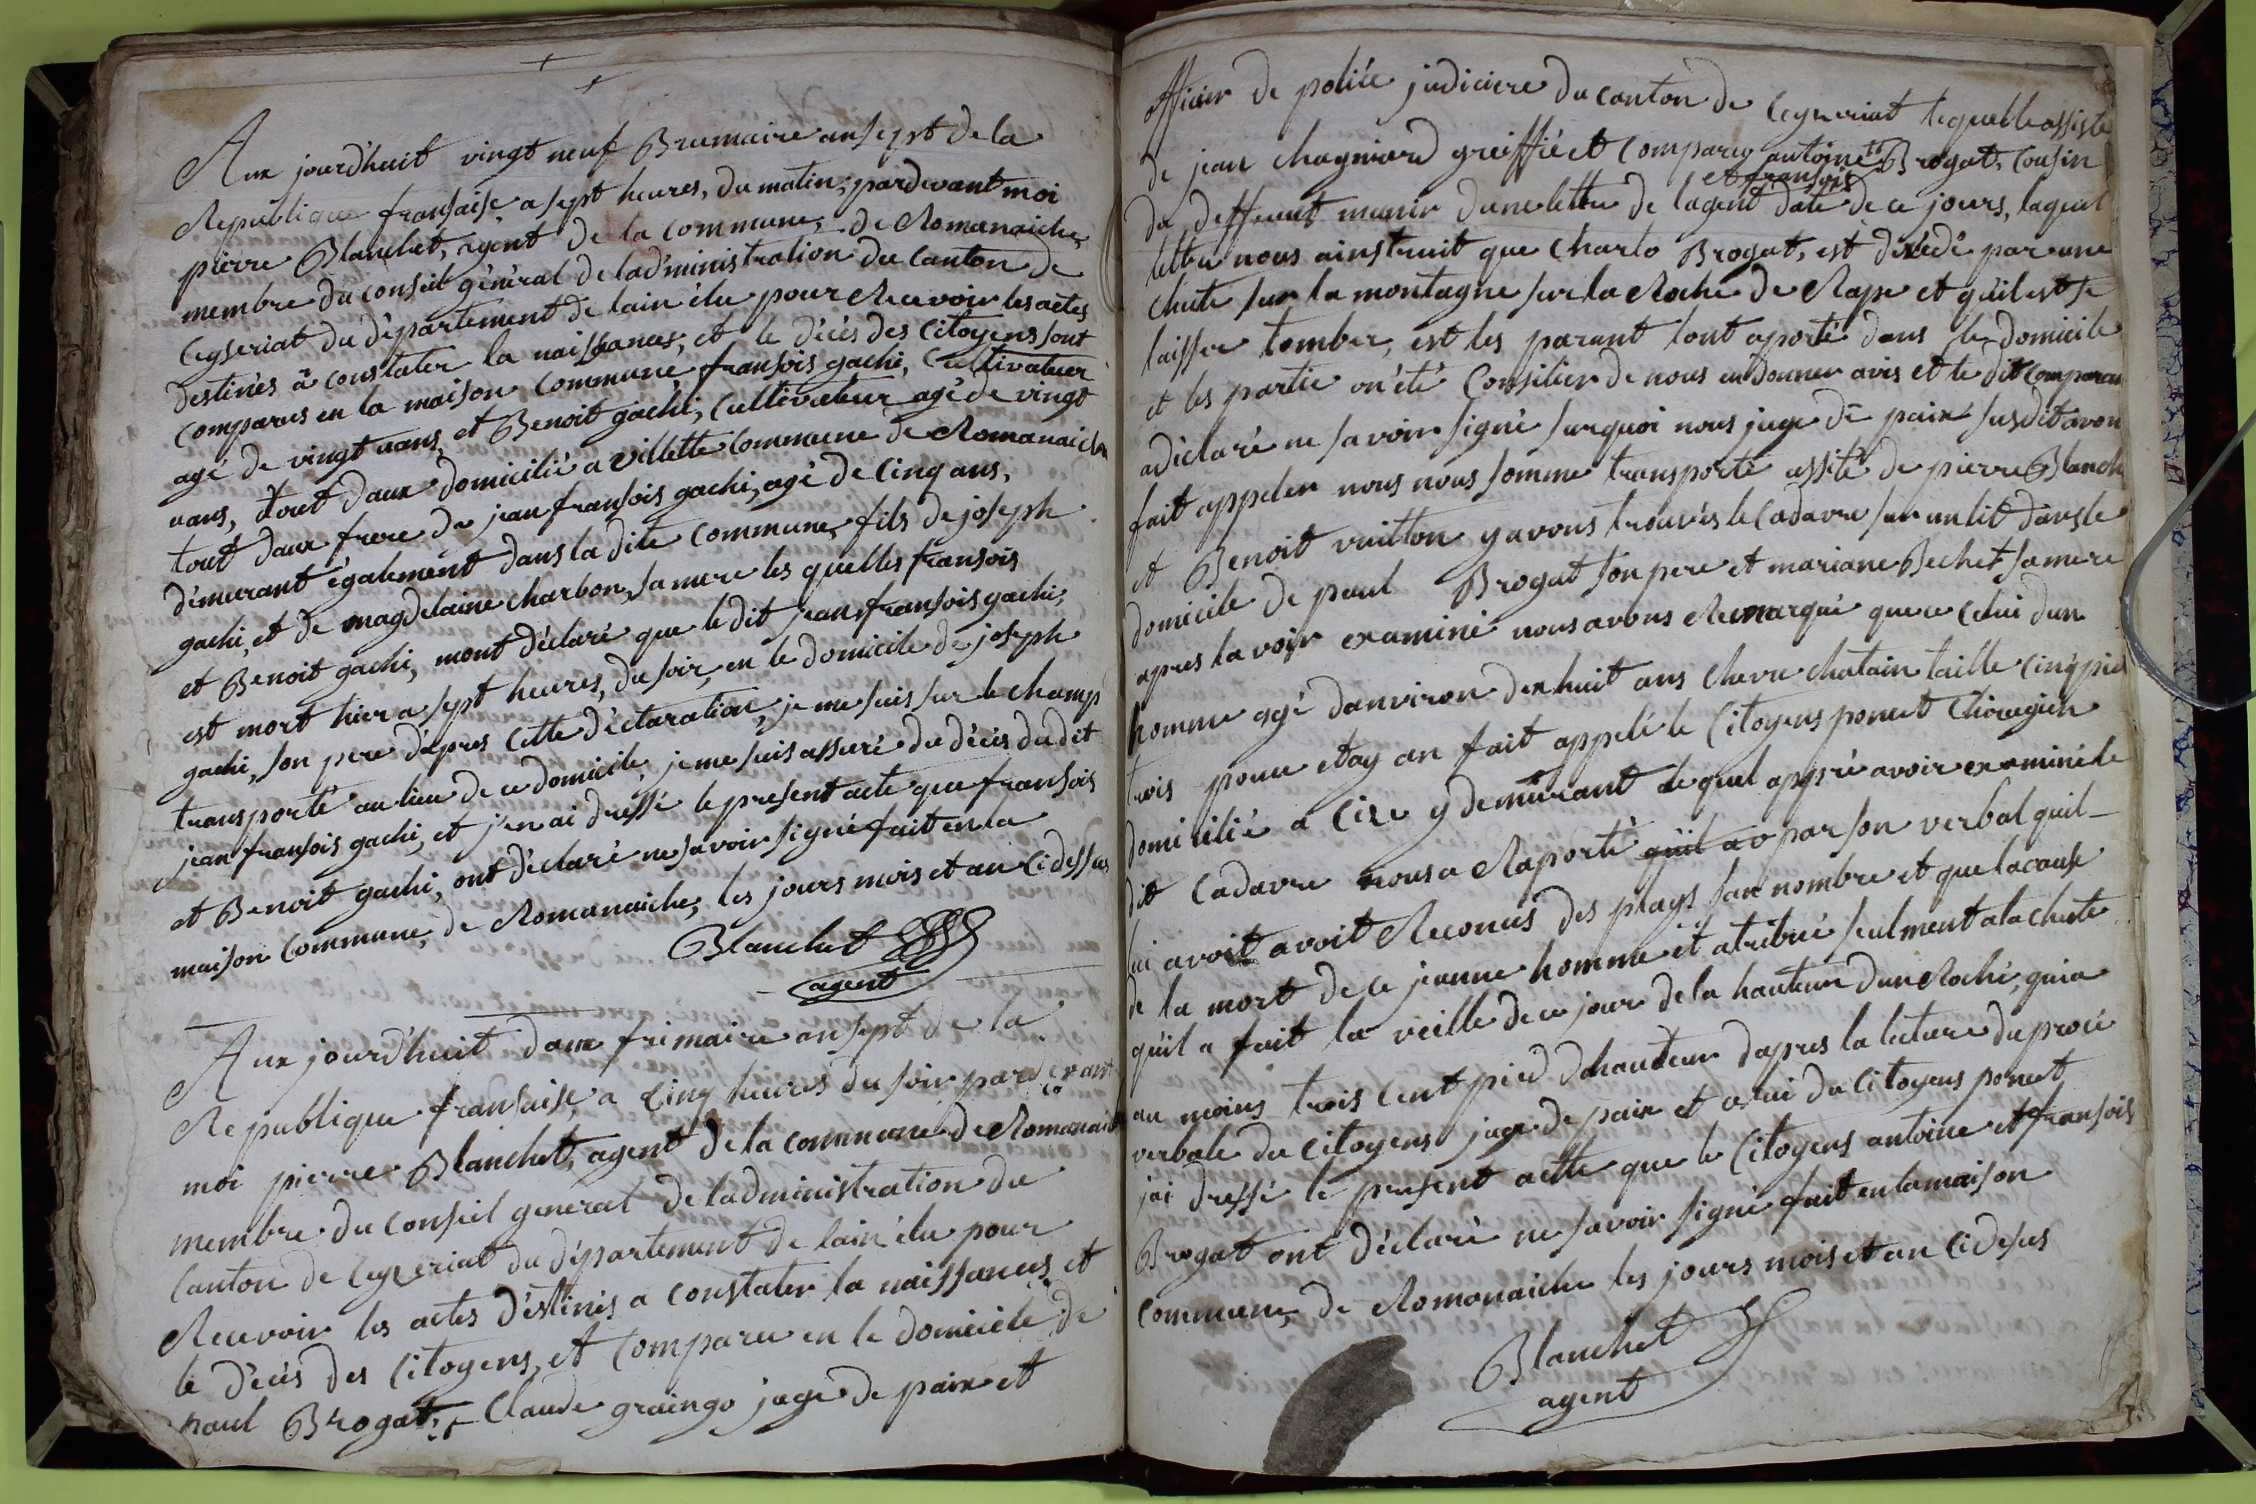 Aux jourd'huit vingt neuf Brumaire an sept de la
Republique fransaise, a sept heures, du matin, pardevant moi
pierre Blanchet, agent de la commune, de Romanaiche
membre du conseil général de ladministration du Canton de
Ceyseriat du département de lain élu pour Recevoir les actes
destinés a constater la naissances, et le décès des Citoyens sont
comparus en la maison commune fransois gachi, Cultivateur
agé de vingt uans, et Benoit gachi, Cultivateur agé de vingt
uans, tout daux domicilié a villette commune de Romanaiche
tout daux frere de jean fransois gachi, agé de Cinq ans,
démurant également dans la dite commune, fils de joseph
gachi, et de magdelaine Charbon, sa mere les quelles fransois
et Benoit gachi, mont déclaré que le dit jean fransois gachi,
est mort hier a sept heures, du soir, en le domicile de joseph
gachi, son pere d'apres cette déclaration, je me suis sur le champ
transporté au lieu de ce domicile, je me suis assuré du décès du dit
jean fransois gachi, et j'en ai dressé le present acte que fransois
et Benoit gachi, ont déclaré ne savoir signé fait en la
maison commune, de Romanaiche, les jours mois et an Cidessus
Blanchet
agent
Aux jourd'huit daux frimaire an sept de la
Republique fransaise, a Cinq heures du soir pardevant
moi pierre Blanchet, agent de la commune de Romanaiche
membre du conseil general de ladministration du
Canton de Ceyzeriat du département de lain élu pour
Recevoir les actes déstinés a constater la naissances et
le décès des Citoyens, et Comparu en le domicile de
paul Brogat, Claude graingo juge de paix et
officier de police judiciere du canton de Ceyzeriat lequel assisté
de jean chagniard greiffié et Comparu antoine Brogat, Cousin
et fransois
du deffunt munir dune lettre de lagent date de ce jours, laquel
lettre nous ainstruit que Charlo Brogat, est décédé par une
chute sur la montagne sur la Roche de Rape et qu'il est se
laisser tomber, est les parant lont aporté dans le domicile
et les partie on été Consilier de nous en donner avis et le dit Comparan
a déclaré ne savoir signé surquoi nous juge de paix susdit avon
fait appeler nous nous somme transporté assité de pierre Blanch
et Benoit vuitton y avons trouvés le Cadavre sur un lit dans le
domicile de paul Brogat son pere et mariane Bechet sa mere
apres lavoir examiné nous avons Remarqué que ce Celui dun
homme agé danviron dexhuit ans Cheveu chatain taille Cinq pied
trois pouce et ay an fait appelé le Citoyens poncet Chirugien
domicilié a Cize y demurant lequel apprè avoir examiné le
dit Cadavre nous a Raporté qu'il a par son verbal quil
lui avoit avoit Reconus des plays san nombre et que la cause
de la mort de ce jeanne homme et atribué seulment a la chute
qu'il a fait la vieille de ce jour de la hauteur dun Roché, qui a
au moins trois Cent pied dhauteur dapres la lecture du procé
verbale du Citoyens juge de paix et celui du Citoyens poncet
jai dressé le present actte que le Citoyens antoine et fransois
Brogat ont déclaré ne savoir signé fait en la maison
commune, de Romanaiche les jours mois et an Cidesus
Blanchet
agent